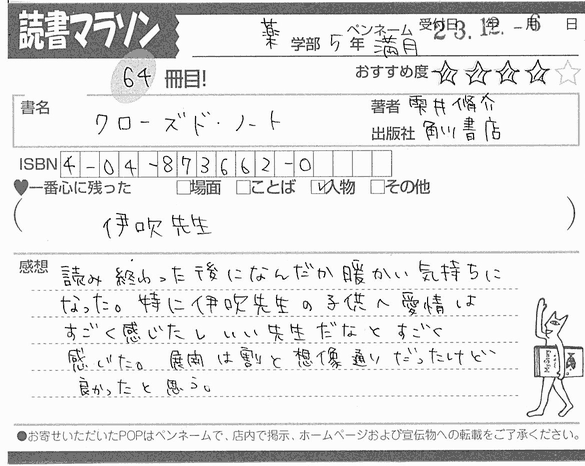 読書マラソン
薬 学部 5 年 ペンネーム 満月
受付日 23.12.-6 年 月 日
64 冊目!
おすすめ度 ☆☆☆☆☆
書名 クローズド・ノート
著者 雫井脩介
出版社 角川書店
ISBN 4-04-873662-0
♥一番心に残った □場面 □ことば ☑人物 □その他
( 伊吹先生 )
感想 読み終わった後になんだか暖かい気持ちに
なった。特に伊吹先生の子供へ愛情は
すごく感じたしいい先生だなとすごく
感じた。展開は割と想像通りだったけど
良かったと思う。
●お寄せいただいたPOPはペンネームで、店内で掲示、ホームページおよび宣伝物への転載をご了承ください。